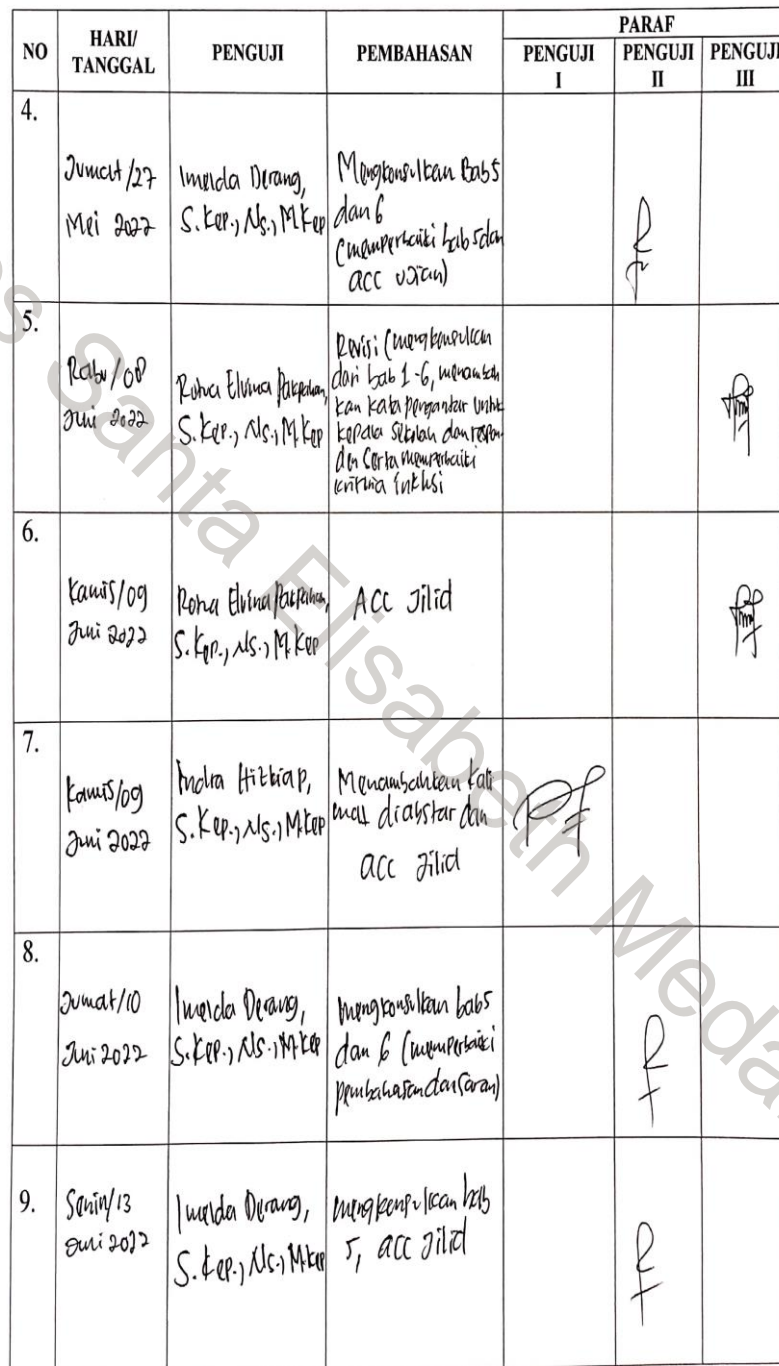 NO
HARI/
TANGGAL
PENGUJI
PEMBAHASAN
PARAF
PENGUJI
I
PENGUJI
II
PENGUJI
III
4.
Jumat/27
Mei 2022
Imelda Derang,
S.Kep., Ns., M.Kep
Mengkonsulkan Bab5
dan 6
(memperbaiki bab 5 dan
acc ujian)
5.
Rabu/08
Juni 2022
Rotua Elvina Pakpahan,
S.Kep., Ns., M.Kep
Revisi (mengkonsulkan
dari bab 1-6, menambah
kan kata pengantar untk
kepala sekolah dan respon
den serta memperbaiki
kriteria inklusi
6.
Kamis/09
Juni 2022
Rotua Elvina Pakpahan,
S.Kep., Ns., M.Kep
ACC Jilid
7.
Kamis/09
Juni 2022
Indra Hizkiap,
S.Kep., Ns., M.Kep
Menambahkan kali
mat diabstar dan
acc Jilid
8.
Jumat/10
Juni 2022
Imelda Derang,
S.Kep., Ns., M.Kep
mengkonsulkan bab5
dan 6 (memperbaiki
pembahasan dan saran)
9.
Senin/13
Juni 2022
Imelda Derang,
S.Kep., Ns., M.Kep
mengkonsulkan bab
5, acc Jilid
s Santa Elisabeth Meda